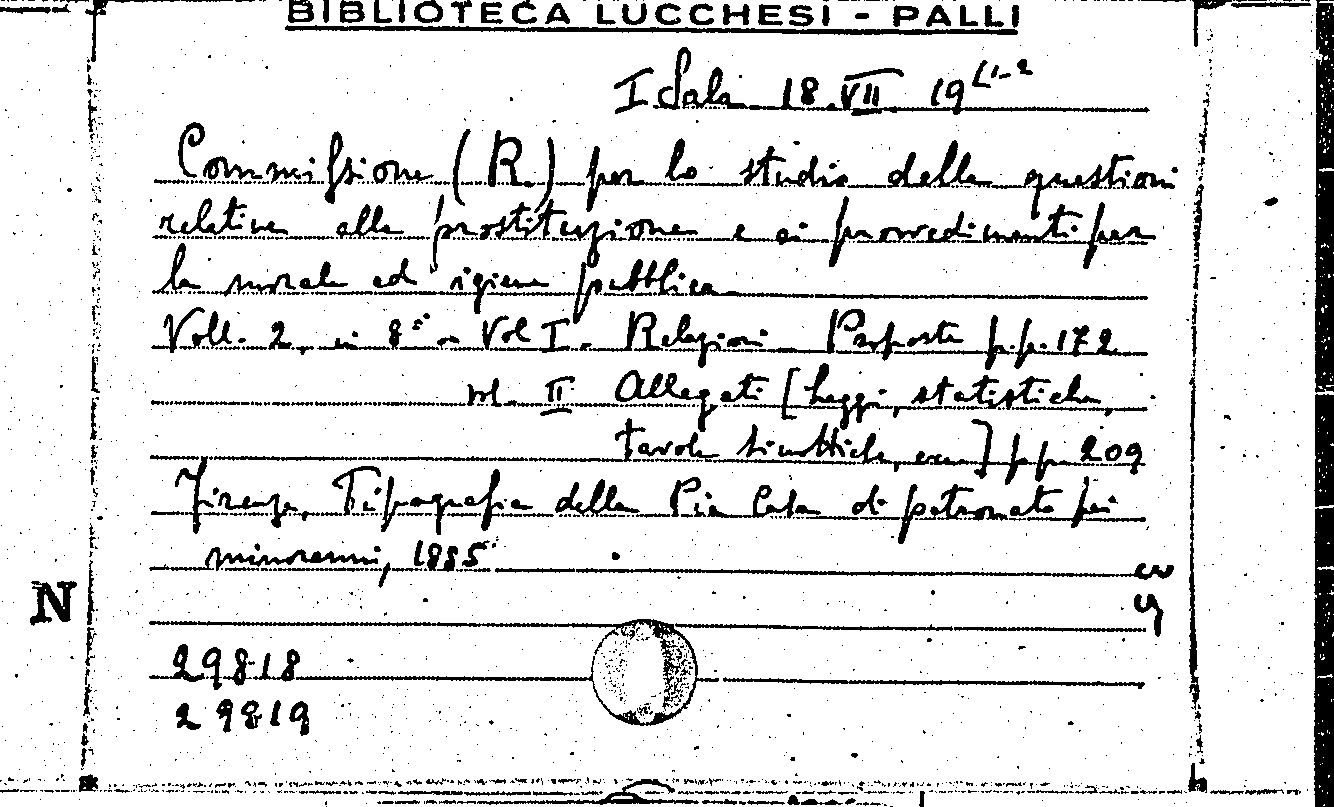 BIBLIOTECA LUCCHESI - PALLI
I Sala 18.VII. 19 (1-2
Commissione (R.) per lo studio delle questioni
relative alla prostituzione e ai provvedimenti per
la morale ed igiene pubblica
Voll. 2, in 8° Vol I. Relazioni Proposte p.p. 172
vol. II Allegati [leggi, statistiche,
tavole sinottiche, ecc.] p.p. 209
Firenze, Tipografia della Pia Casa di patronato pei
minorenni, 1885
N
29818
29819